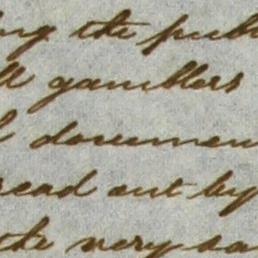 ing the publ
ll gamblers
l documen
read out by
the very sa